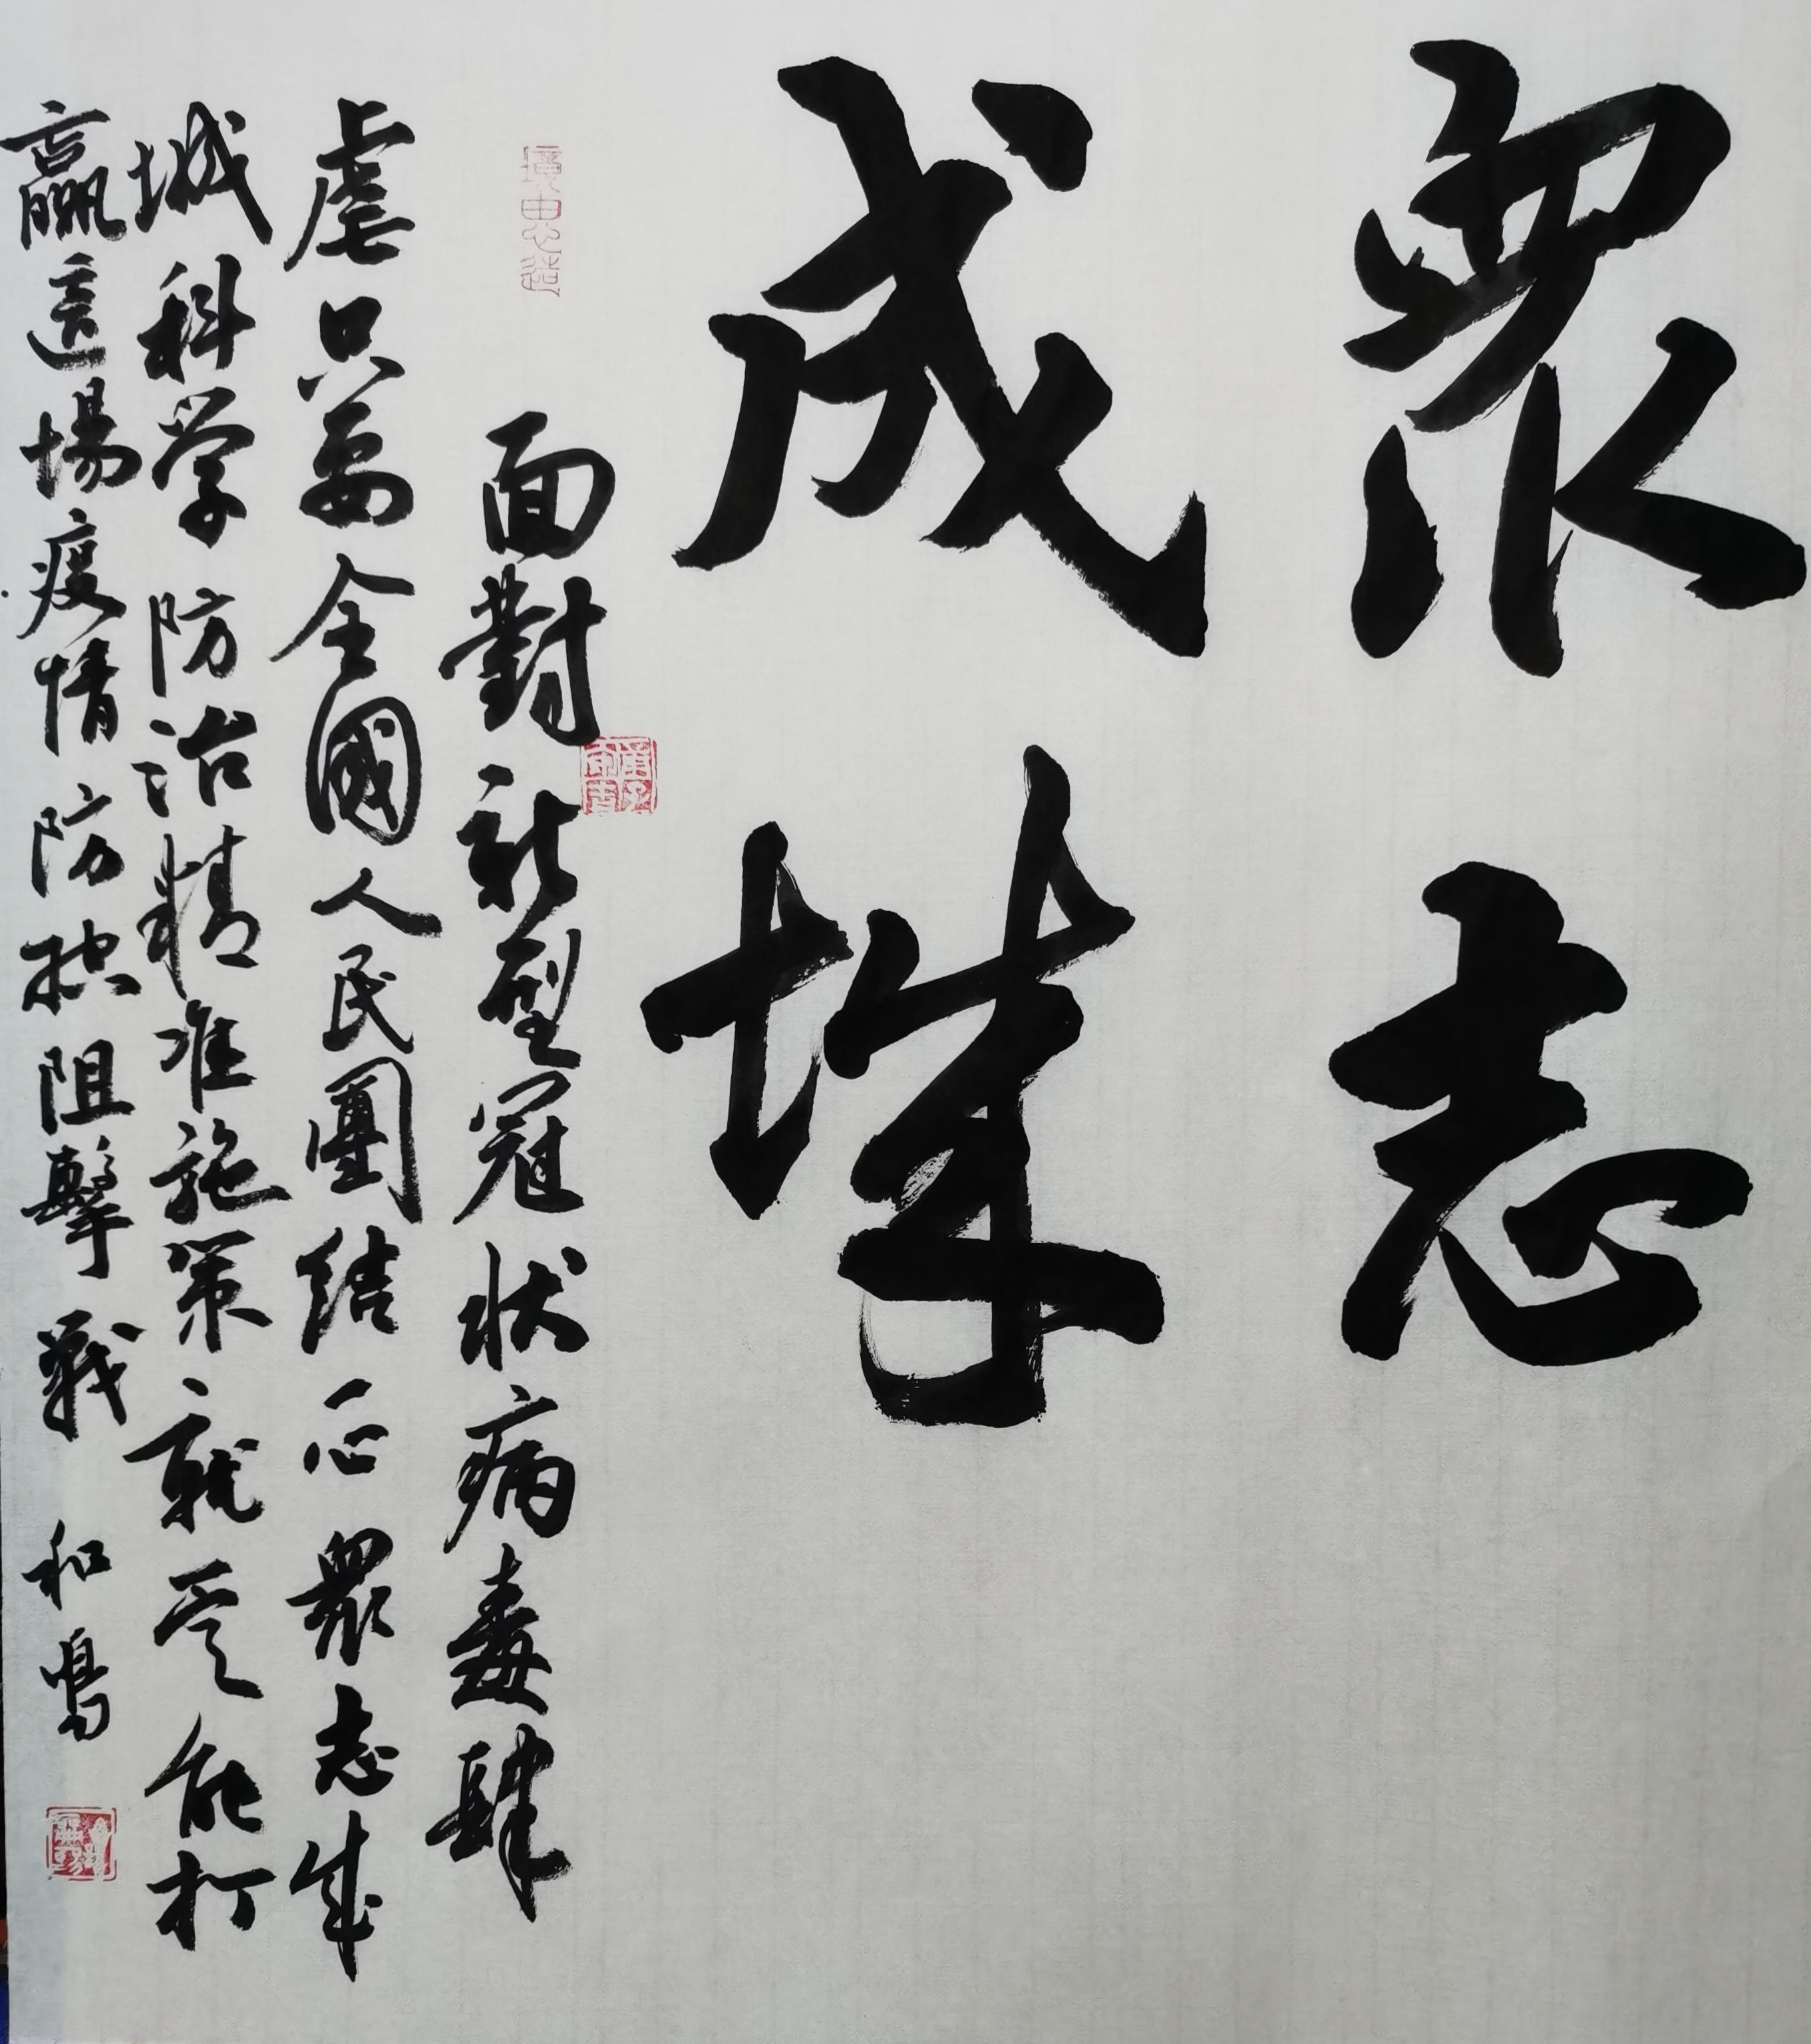 衆志
成城
面對新型冠狀病毒肆
虐只要全國人民團結一心衆志成
城科学防治精准施策就一定能打
贏這場疫情防控阻擊戰 和鳴